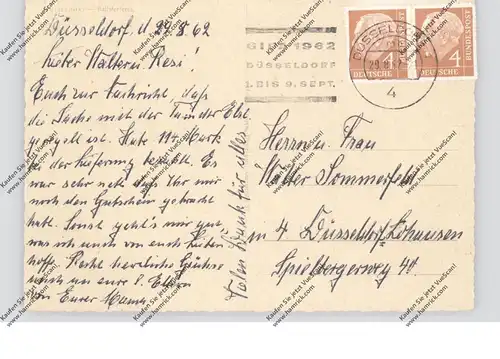 Düsseldorf, d 29.8.62
Lieber Walter u. Resi!
Euch zur Nachricht, daß
die Sache mit der
geregelt ist. Habe 114 Mark
bei der bezahlt. Es
war sehr nett daß Ihr mir
noch den Gutschein gebracht
habt. Sonst geht's mir gut,
was ich auch von euch beiden
hoffe. Recht herzliche Grüße
auch an eure l. Eltern
von Eurer Mama
Vielen Dank für alles
1962
DÜSSELDORF
BIS 9. SEPT.
DÜSSELDORF
4
DEUTSCHE BUNDESPOST
DEUTSCHE BUNDESPOST 4
Herrn u. Frau
Walter Sommerfeld
in 4 Düsseldorf-Lohausen
Spielbergerweg 40
Kaufen Sie jetzt VueScan!
www.hamrick.com